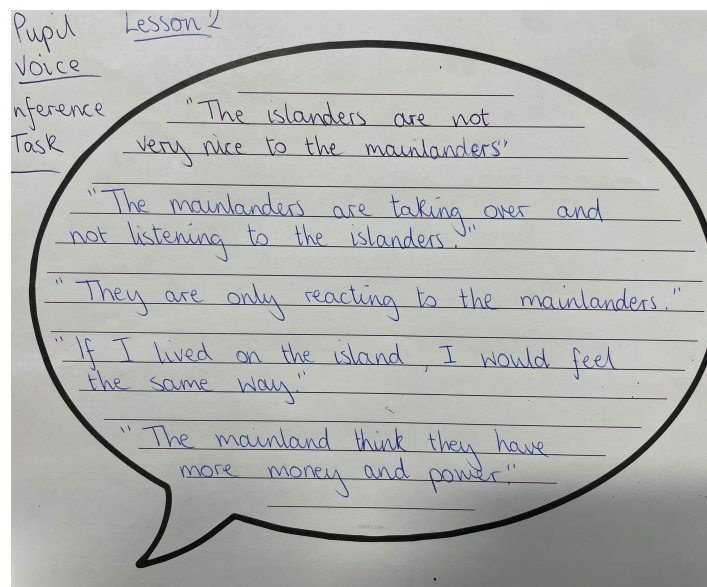 Pupil
Voice
nference
Task
Lesson 2
"The islanders are not
very nice to the mainlanders"
"The mainlanders are taking over and
not listening to the islanders."
"They are only reacting to the mainlanders."
"If I lived on the island, I would feel
the same way."
"The mainland think they have
more money and power."